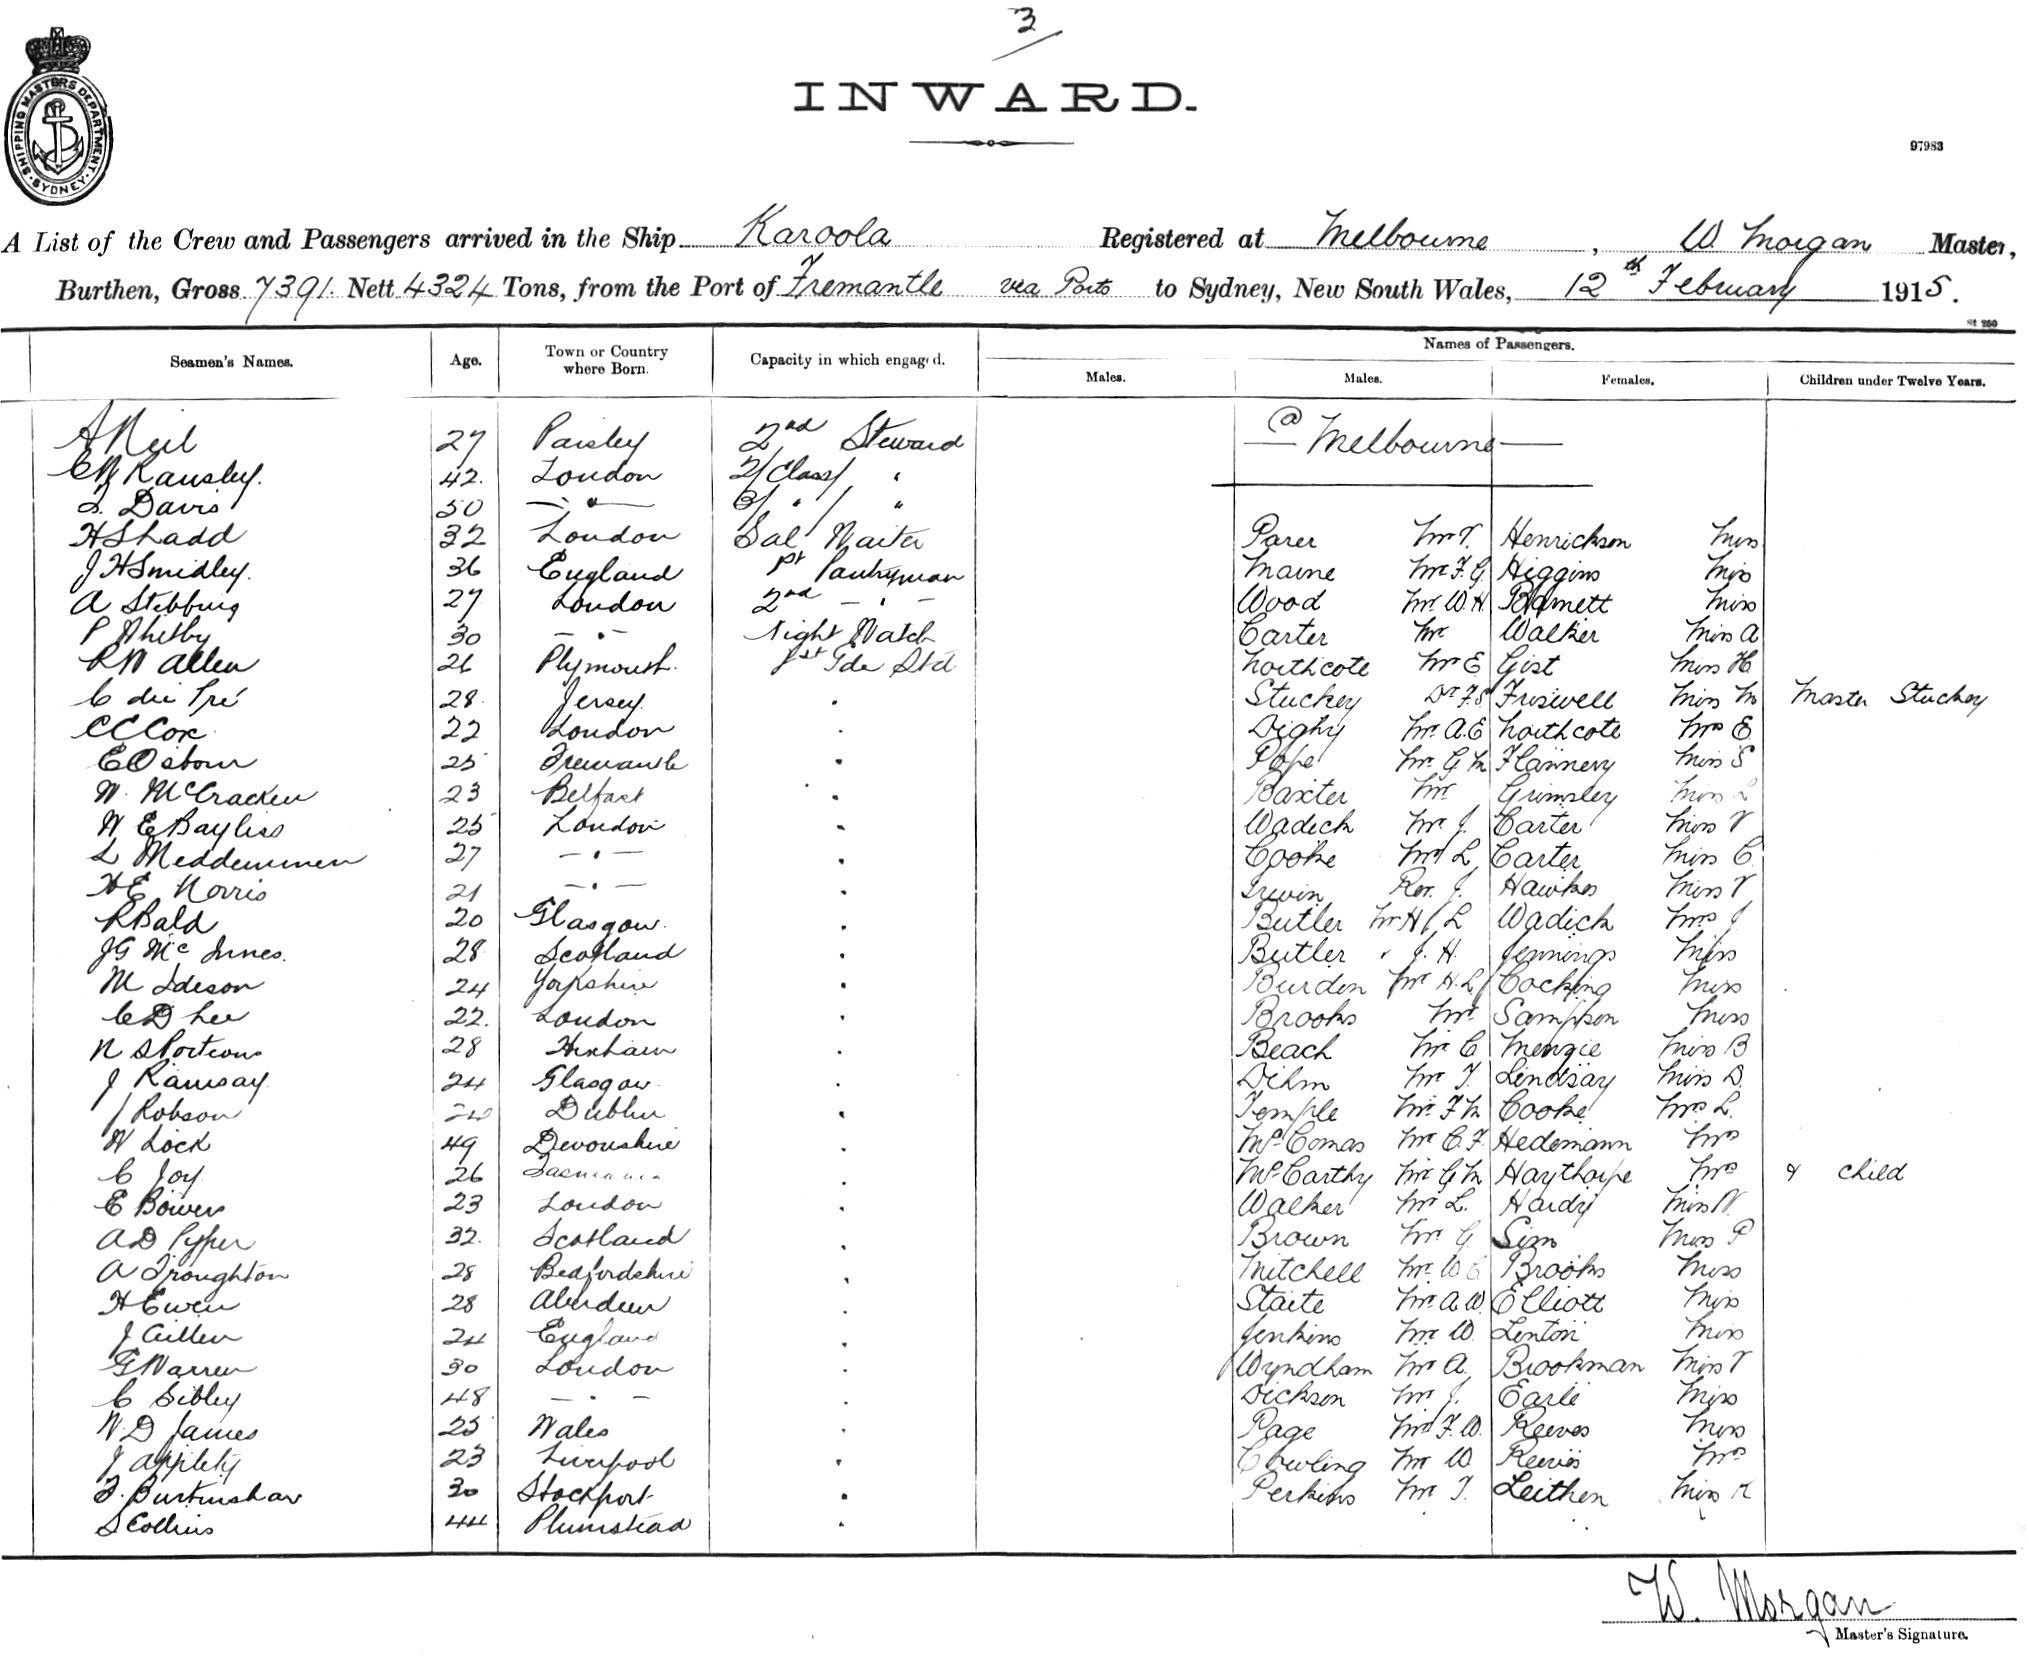 3
INWARD.
SHIPPING MASTERS DEPARTMENT
SYDNEY
97983
A List of the Crew and Passengers arrived in the Ship Karoola Registered at Melbourne, W Morgan Master,
Burthen, Gross 7391. Nett 4324 Tons, from the Port of Fremantle via Ports to Sydney, New South Wales, 12th February 1915.
St 250
Names of Passengers.
Seamen's Names. Age. Town or Country where Born. Capacity in which engaged. Males. Males. Females. Children under Twelve Years.
A Neil 27 Paisley 2nd Steward @ Melbourne
CW Kansley. 42. London 2/Class/ "
Davis 50 — " — 3/ " / "
H Shadd 32 London Sal Waiter Parer Mr V. Henrickson Miss
J H Smidley. 36 England 1st Pantryman Maine Mr F. G Higgins Miss
A Stebbing 27 London 2nd — " — Wood Mr W. H Barnett Miss
P Whitby 30 — " — Night Watch Carter Mr Walker Miss A
R W Allen 26 Plymouth. 1st Gde Std Northcote Mr E Gist Miss H
C du Pré 28. Jersey. " Stuckey Dr F. S Friswell Miss M Master Stuckey
C C Cox 22 London " Digby Mr. A. E Northcote Mrs E
E Osborn 25 Fremantle " Pope Mr. G M Flannery Miss S
W. McCracken 23 Belfast " Baxter Mr Grimsley Miss L
W E Bayliss 25 London " Wadick Mr J. Carter Miss V
L Meddemmen 27 — " — " Cooke Mr L Carter Miss C.
H E Norris 21 — " — Irwin Rev. J. Hawkes Miss V
R Bald 20 Glasgow. " Butler Mr H L Wadick Mrs J
J G McInnes. 28. Scotland " Butler " J. H. Jennings Miss
M Ideson 24 Yorkshire " Burden Mr H. L Cocking Miss
C D Lee 22. London " Brooks Mr Sampson Miss
N S Porteous 28 Hexham " Beach Mr C Menzie Miss B
J Ramsay. 24 Glasgow. " Dihm Mr T. Lindsay Miss D.
J Robson 24 Dublin " Temple Mr F M Cooke Mrs L.
W Lock 49 Devonshire " McComas Mr C. F. Hedemann Mrs
C Joy 26 Tasmania " McCarthy Mr G M Haythorpe Mrs & child
E Bowers 23 London " Walker Mr L. Hardy Miss N.
A D Pyper 32. Scotland " Brown Mr. G Sim Miss P
A Troughton 28 Bedfordshire " Mitchell Mr. W C Brooks Miss
H Ewen 28 Aberdeen " Staite Mr A W. Elliott Miss
J Aitken 24 England " Jenkins Mr W. Lenton Miss
G Warren 30 London " Wyndham Mr A. Brookman Miss V
C Sibley 48 — " — " Dickson Mr J. Earle Miss
W. D James 25 Wales " Page Mr F. W. Reeves Miss
J Appleby 23 Liverpool " Cowling Mr W. Reeves Mrs
F. Burtinshaw 30 Stockport " Perkins Mr T. Leithen Miss K
S Collins 44 Plumstead "
W. Morgan
Master's Signature.